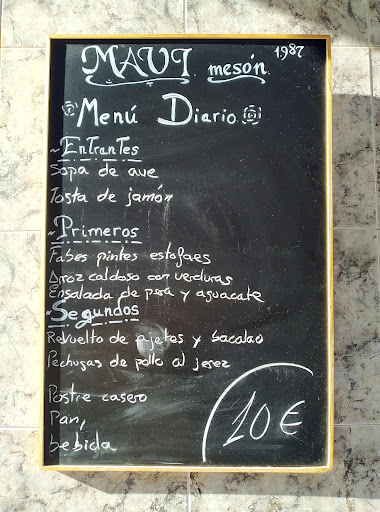 MAVI mesón 1987
Menú Diario
~Entrantes
Sopa de ave
Tosta de jamón
~Primeros
Fabes pintes estofaes
Arroz caldoso con verduras
Ensalada de pera y aguacate
~Segundos
Revuelto de ajetes y bacalao
Pechugas de pollo al jerez
Postre casero
Pan,
bebida
10€